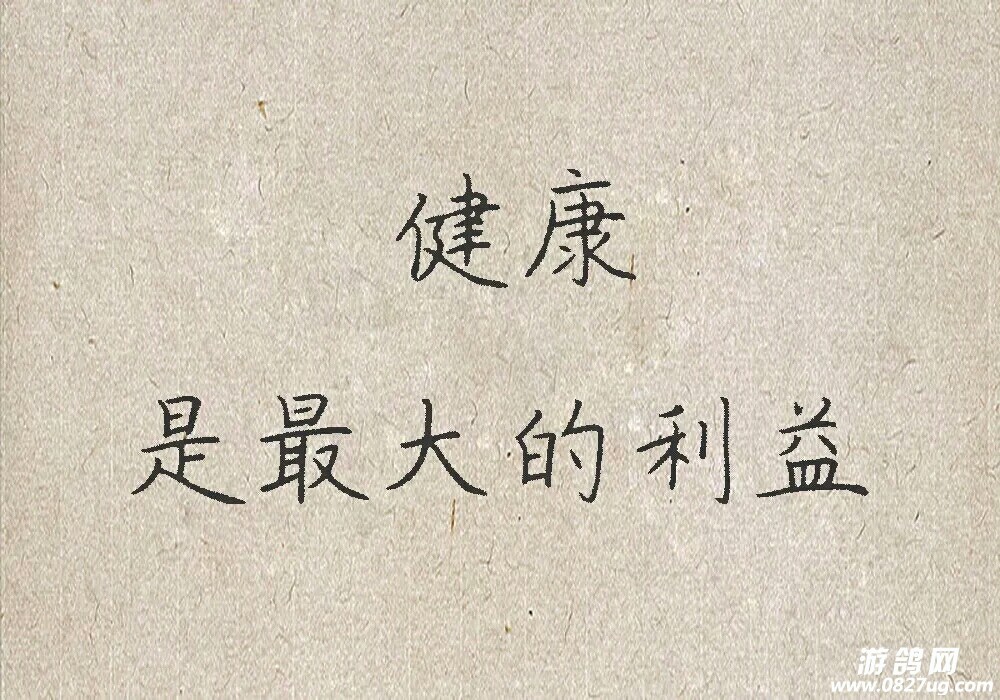 健康
是最大的利益
游鸽网
www.0827ug.com